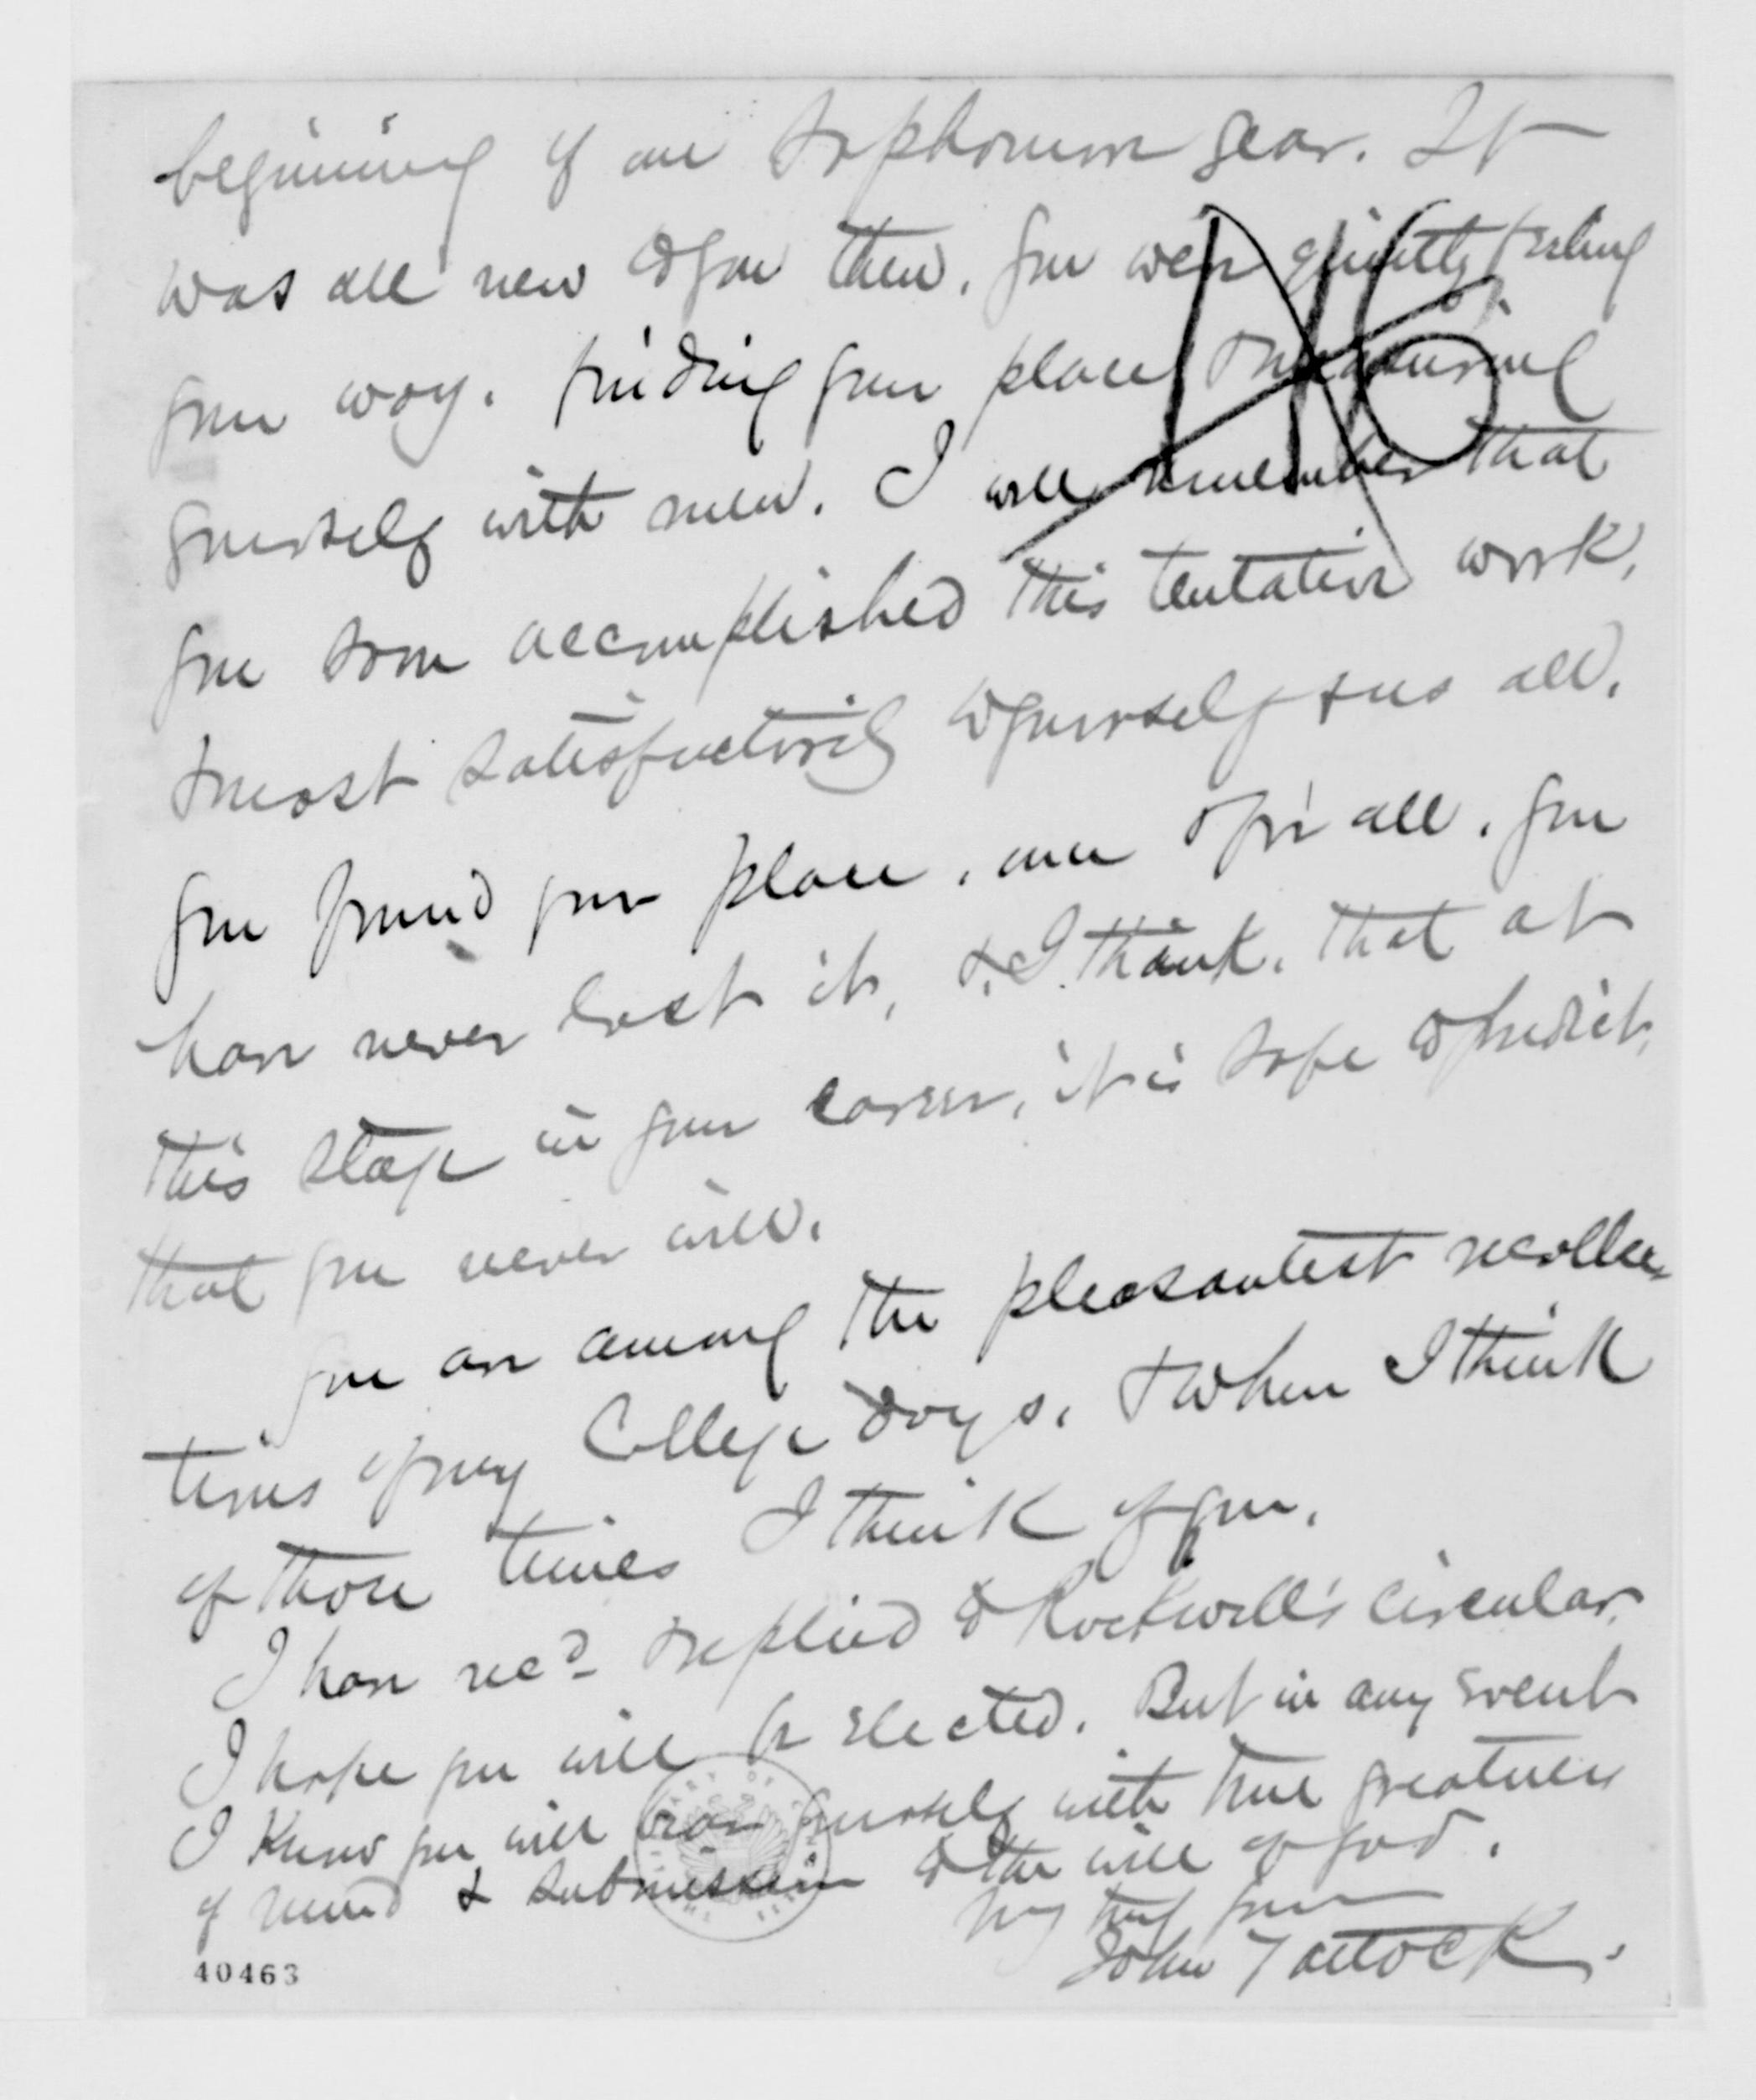 beginning of our Sophomore year. It
was all new to you then. You were quietly feeling
your way. finding your place & measuring
yourself with men. I well remember that
you soon accomplished this tentative work,
& most satisfactorily to yourself & us all.
You found your place, once & for all. You
have never lost it, & I think, that at
this stage in your career, it is safe to predict,
that you never will.
You are among the pleasantest recollec-
tions of my College days. & when I think
of those times I think of you.
I have rec'd & replied to Rockwell's circular.
I hope you will be elected. But in any event
I know you will bear yourself with true greatness
of mind & submission to the will of God.
Very truly yours
John Tatlock.
40463